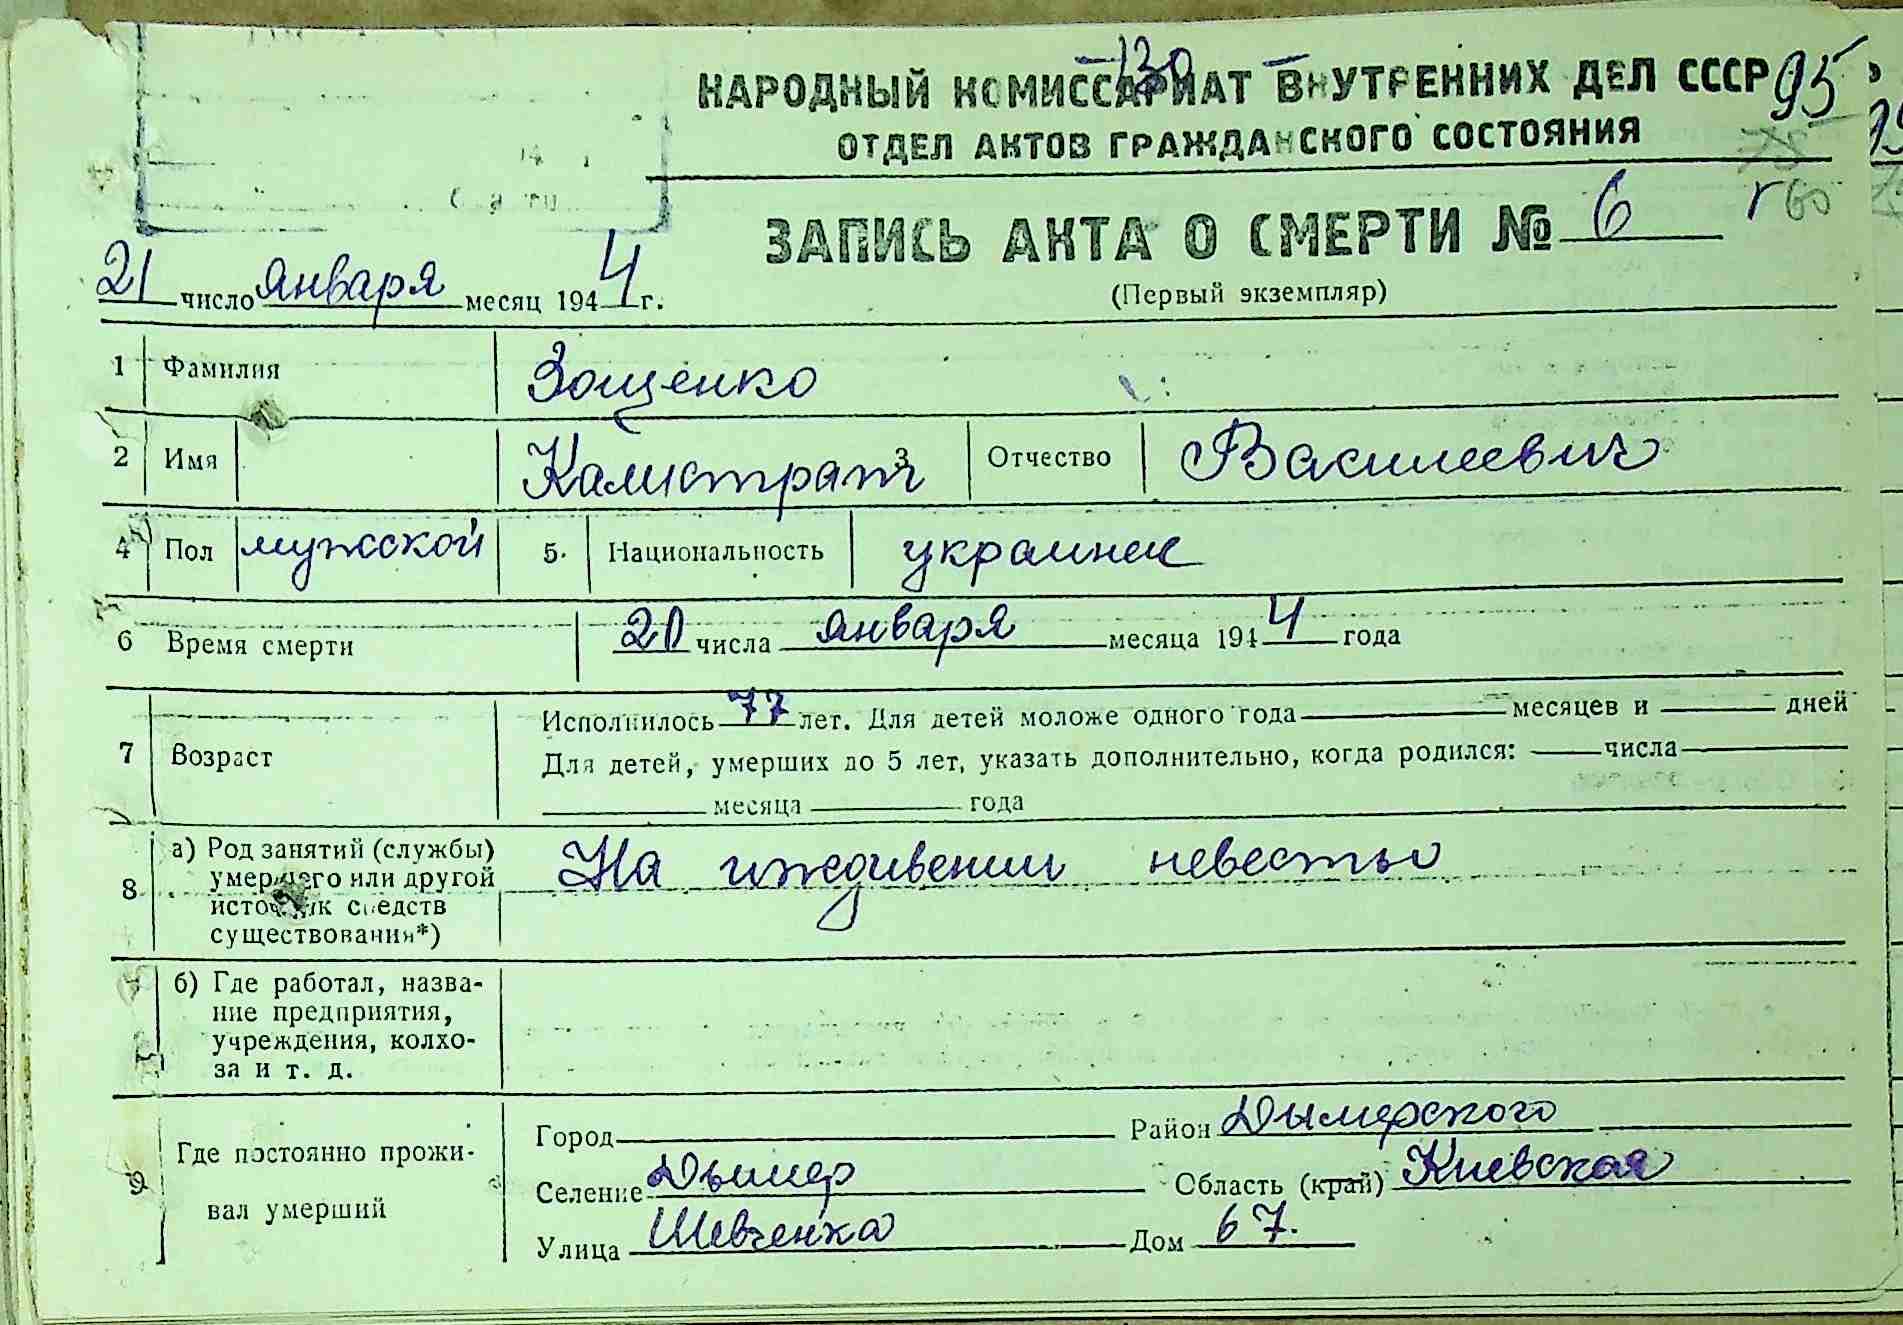 -130-
НАРОДНЫЙ КОМИССАРИАТ ВНУТРЕННИХ ДЕЛ СССР 95
ОТДЕЛ АКТОВ ГРАЖДАНСКОГО СОСТОЯНИЯ
ЗАПИСЬ АКТА О СМЕРТИ № 6
21 число января месяц 1944 г.
(Первый экземпляр)
1 Фамилия Зощенко
2 Имя Калистрат 3 Отчество Василиевич
4 Пол мужской 5. Национальность украинец
6 Время смерти 20 числа января месяца 1944 года
7 Возраст
Исполнилось 77 лет. Для детей моложе одного года месяцев и дней
Для детей, умерших до 5 лет, указать дополнительно, когда родился: числа
месяца года
8 а) Род занятий (службы)
умершего или другой
источник средств
существования*)
На иждивении невесты
б) Где работал, назва-
ние предприятия,
учреждения, колхо-
за и т. д.
9 Где постоянно прожи-
вал умерший
Город Район Дымерского
Селение Дымер Область (край) Киевская
Улица Шевченка Дом 67.